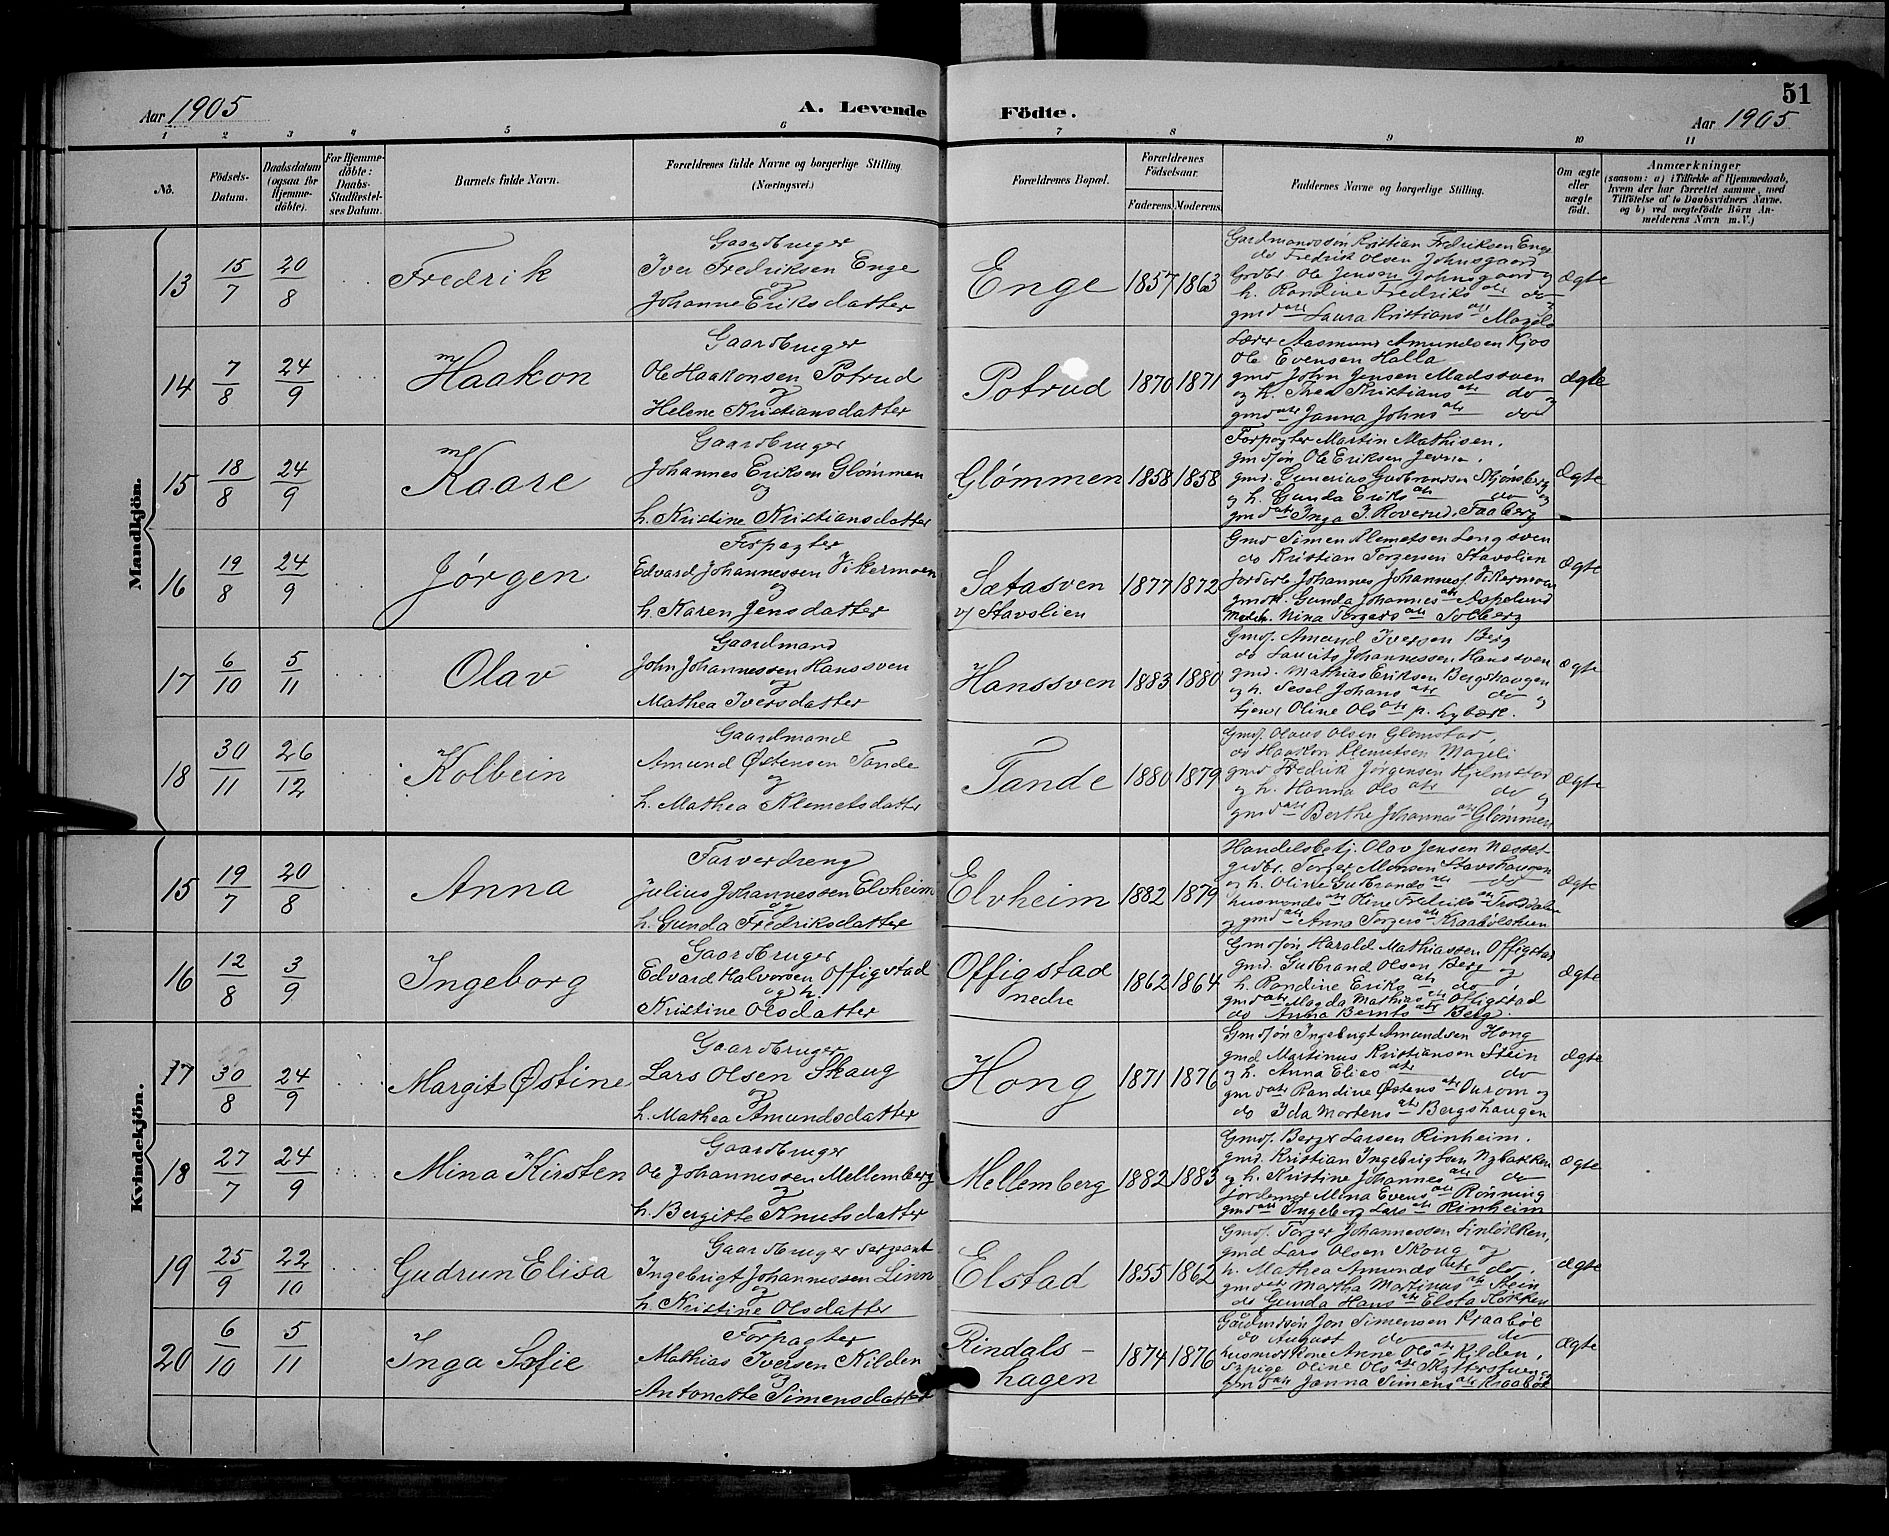 51
Aar 1905
A. Levende Födte.
Aar 1905
1 2 3 4 5 6 7 8 9 10 11
No.
Födsels-Datum.
Daabsdatum (ogsaa for Hjemme-döbte).
For Hjemme-döbte: Daabs-Stadfæstel-ses Datum.
Barnets fulde Navn.
Forældrenes fulde Navne og borgerlige Stilling (Næringsvei.)
Forældrenes Bopæl.
Forældrenes Födselsaar.
Faderens. Moderens.
Faddernes Navne og borgerlige Stilling.
Om ægte eller uægte födt.
Anmærkninger
(saasom: a) i Tilfælde af Hjemmedaab,
hvem der har forrettet samme, med
Tilföielse af to Daabsvidners Navne.
og b) ved uægtefödte Börn An-
melderens Navn m. V.)
Mandkjön.
13 15/7 20/8 Fredrik
Gaardbruger
Iver Fredriksen Enge
og
Johanne Eriksdatter
Enge 1857 1863
Gardmandssön Kristian Fredriksen Enge
do Fredrik Olsen Johnsgaard
Grdbr Ole Jensen Johnsgaard og
h. Randine Fredriks dtr do
gmd dtr Laura Kristians dtr
Ægte
14 7/8 24/9 Haakon
Gaardbruger
Ole Haakonsen Potrud
og
Helene Kristiansdatter
Potrud 1870 1871
Lærer Aasmund Amundsen Kjos
Ole Evensen Halla
gmd John Jensen Madssven
og h. Thea Kristians dtr do og
gmd dtr Janna Johns dtr do
ægte
15 18/8 24/9 Kaare
Gaardbruger
Johannes Eriksen Glømmen
og
h. Kristine Kristiansdatter
Glømmen 1858 1858
Forpagter Martin Mathisen.
gmdsön Ole Eriksen Jevne.
gmd. Gunerius Gudbrandsen Skjönsberg
og h. Gunda Eriks dtr do og
gmd dtr Inga J. Roverud. Faaberg
Ægte
16 19/8 24/9 Jørgen
Forpagter
Edvard Johannessen Vikermoen
og
h. Karen Jensdatter
Sætasven
v/ Stavslien
1877 1872
Gmd Simen Klemetsen Longsven
do Kristian Torgersen Stavslien
Johannes Johannes. Vikermoen
Gunda Johannes dtr Aspelund
Nina Torgers dtr Solberg
Ægte
17 6/10 5/11 Olav
Gaardmand
John Johannessen Hanssven
og
Mathea Iversdatter
Hanssven 1883 1880
Gmds. Amund Iversen Berg
do Laurits Johannessen Hanssven
gmd. Mathias Eriksen Bergshaugen
og h. Sesel Johans dtr do og
tjener Oline Ols dtr p. Lybæk.
ægte
18 30/11 26/12 Kolbein
Gaardmand
Amund Østensen Tande
og
h. Mathea Klemetsdatter
Tande 1880 1879
Gmds. Olaus Olsen Glomstad.
do Haakon Klemetsen Mageli
gmd Fredrik Jørgensen Hjelmstad
og h. Hanna Ols dtr do og
gmd dtr Berthe Johannes dtr Glömmen
ægte
Kvindekjön.
15 19/7 20/8 Anna
Farverdreng
Julius Johannessen Elvheim
og
h. Gunda Fredriksdatter
Elvheim 1882 1879
Handelsbetj. Olav Jensen Næsset
grdbr. Torger Monsen Stavshaugen
og h. Oline Gudbrands dtr do
husmands dtr Oline Fredriks dtr
og gmd dtr Anna Torgers dtr Kraabølslien
Ægte
16 12/8 3/9 Ingeborg
Gaardbruger
Edvard Halvorsen Offigstad
og h.
Kristine Olsdatter
Offigstad
nedre
1862 1864
Gmdsön Harald Mathiassen Offigstad
gmd. Gudbrand Olsen Berg og
h. Randine Eriks dtr do
gmd dtr Magda Mathias dtr Offigstad
do Anna Bernts dtr Berg.
Ægte
17 30/8 24/9 Margit Østine
Gaardbruger
Lars Olsen Skaug
og
h. Mathea Amundsdatter
Hong 1871 1876
Gmdsön Ingebrigt Amundsen Hong
gmd Martinus Kristiansen Stein
og h. Anna Elias dtr do
gmd dtr Randine Østens dtr Ourom og
do Ida Mortens dtr Bergshaugen
Ægte
18 27/7 24/9 Mina Kirsten
Gaardbruger
Ole Johannessen Mellemberg
og
h. Bergitte Knutsdatter
Mellemberg 1882 1883
Gmds. Berger Larsen Rinheim.
gmd. Kristian Ingebrigtsen Nybakken
og h. Kristine Johannes dtr do
jordemor Mina Evens dtr Rønning
gmd dtr Ingeborg Lars dtr Rinheim
Ægte
19 25/9 22/10 Gudrun Elisa
Gaardbruger sergeant
Ingebrigt Johannessen Linn
og
h. Kristine Olsdatter
Elstad 1855 1862
Gmds. Torger Johannessen Linløkken,
gmd Lars Olsen Skoug og
h. Mathea Amunds dtr do.
gmd dtr Martha Martinus dtr Stein
do Gunda Hans dtr Elstaløkken
ægte
20 6/10 5/11 Inga Sofie
Forpagter
Mathias Iversen Kilden
og
Antonette Simensdatter
Rindals-
hagen
1874 1876
Gaardmdsön Jon Simensen Kraabøl
do August do do
husmdskone Anne Ols dtr Kilden,
pige Oline Ols dtr
gmd dtr Janna Simens dtr Kraabøl
Ægte